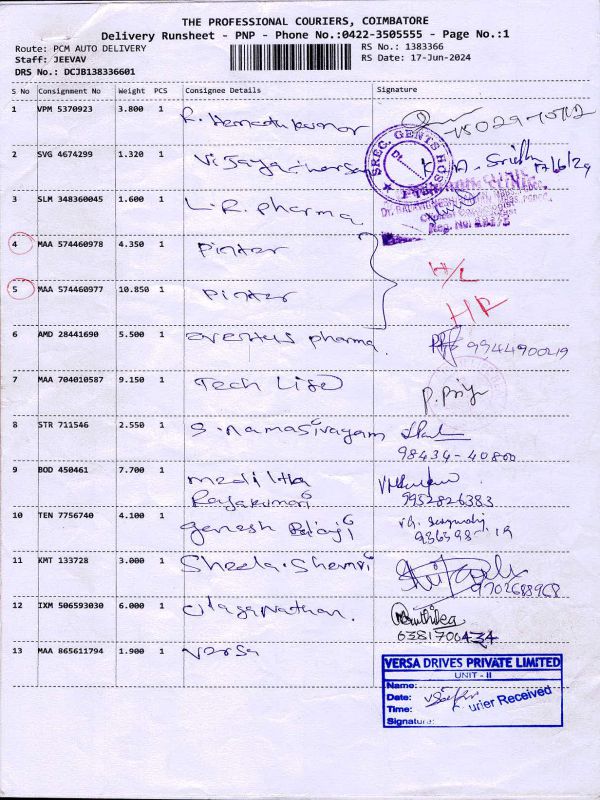 THE PROFESSIONAL COURIERS, COIMBATORE
Delivery Runsheet - PNP - Phone No.:0422-3505555 - Page No.:1
Route: PCM AUTO DELIVERY
RS No.: 1383366
Staff: JEEVAV
RS Date: 17-Jun-2024
DRS No.: DCJB138336601
S No Consignment No Weight PCS Consignee Details Signature
1 VPM 5370923 3.800 1
2 SVG 4674299 1.320 1 17/6/24
SREC. GENTS HOS
3 SLM 348360045 1.600 1 L.R. pharma
4 MAA 574460978 4.350 1 Pinter H/L
5 MAA 574460977 10.850 1 Pinter
6 AMD 28441690 5.500 1 pharma. 9944900419
7 MAA 704010587 9.150 1 Tech Life P. Priya
8 STR 711546 2.550 1 S. Namasivayam
98434-40800
9 BOD 450461 7.700 1
Rajakumari 9952826383
10 TEN 7756740 4.100 1 Ganesh Balaji
11 KMT 133728 3.000 1 Sheela. 9702688968
12 IXM 506593030 6.000 1
6381700434
13 MAA 865611794 1.900 1 Versa
VERSA DRIVES PRIVATE LIMITED
UNIT - II
Name:
Date:
Time: Courier Received
Signature: